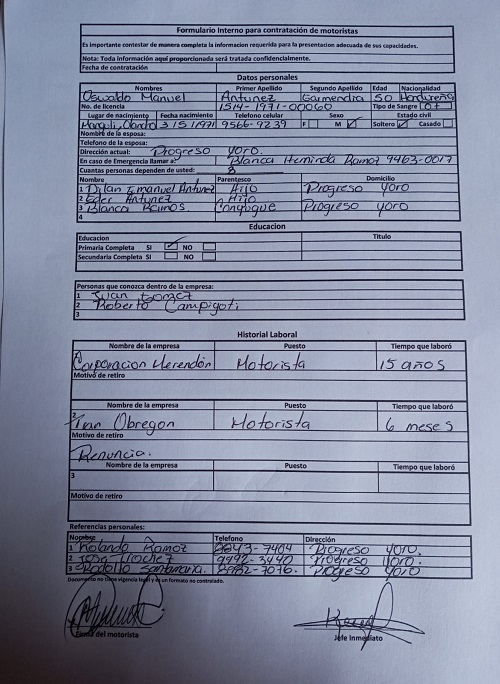 Formulario Interno para contratación de motoristas
Es importante contestar de manera completa la informacion requerida para la presentacion adecuada de sus capacidades.
Nota: Toda información aquí proporcionada será tratada confidencialmente.
Fecha de contratación
Datos personales
Nombres Primer Apellido Segundo Apellido Edad Nacionalidad
Oswaldo Manuel Antunez Garmendia 50 Hondureña
No. de licencia 1514-1971-00060 Tipo de Sangre O+
Lugar de nacimiento Fecha nacimiento Telefono celular Sexo Estado civil
Olancho 3/5/1971 9566-9239 F M Soltero Casado
Nombre de la esposa:
Telefono de la esposa:
Dirección actual: Progreso yoro.
En caso de Emergencia llamar a: Blanca Herminda Ramoz 9463-0017
Cuantas personas dependen de usted: 3
Nombre Parentesco Domicilio
1 Dilan Emanuel Antunez Hijo Progreso yoro
2 Eder Antunez Hijo
3 Blanca Ramos Conyugue Progreso yoro
4
Educacion
Educacion Titulo
Primaria Completa SI NO
Secundaria Completa SI NO
Personas que conozca dentro de la empresa:
1 Juan Gomez
2 Roberto Campigoti
3
Historial Laboral
Nombre de la empresa Puesto Tiempo que laboró
Corporacion Merendón Motorista 15 años
Motivo de retiro
Nombre de la empresa Puesto Tiempo que laboró
2 Ivan Obregon Motorista 6 meses
Motivo de retiro
Renuncia.
Nombre de la empresa Puesto Tiempo que laboró
3
Motivo de retiro
Referencias personales:
Nombre Telefono Dirección
1 Rolando Ramoz 9843-7404 Progreso yoro.
2 Jose Trochez 9992-3440 Progreso Yoro.
3 Rodolfo Santamaria. 8982-7076. Progreso yoro
Documento no tiene vigencia legal y es un formato no controlado.
Firma del motorista Jefe Inmediato